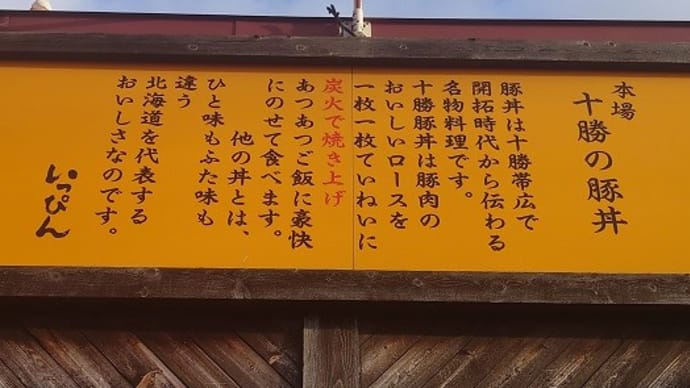 本場
十勝の豚丼
豚丼は十勝帯広で
開拓時代から伝わる
名物料理です。
十勝豚丼は豚肉の
おいしいロースを
一枚一枚ていねいに
炭火で焼き上げ
あつあつご飯に豪快
にのせて食べます。
他の丼とは、
ひと味もふた味も
違う
北海道を代表する
おいしさなのです。
いっぴん